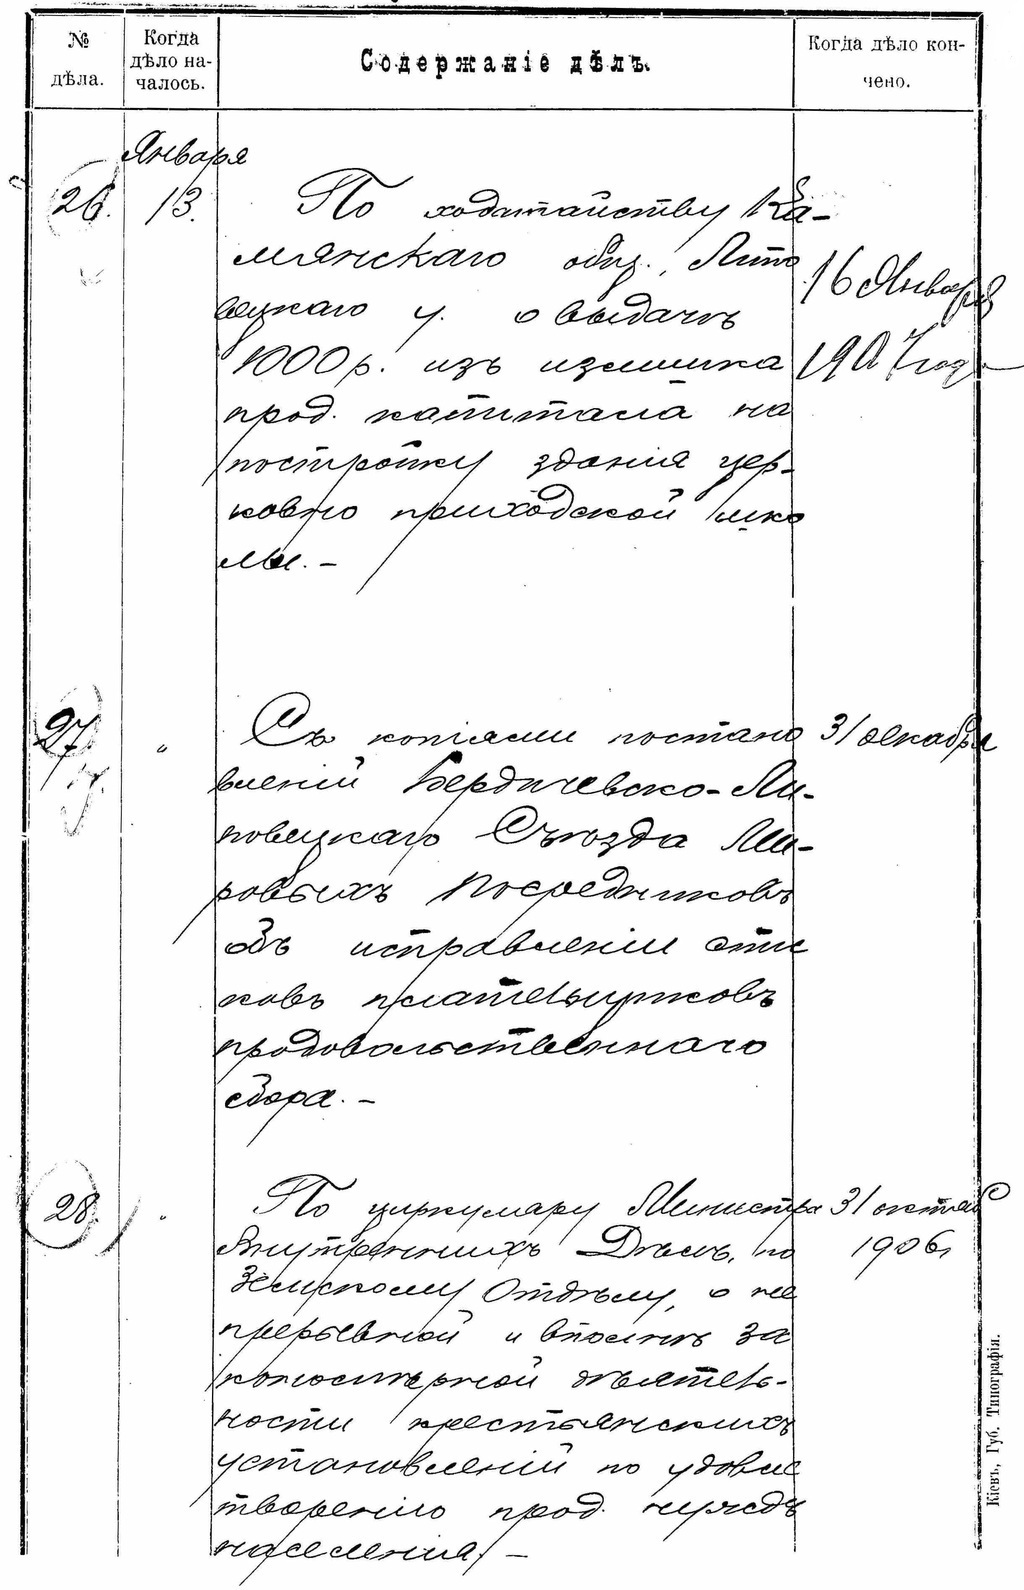 № дѣла.
Когда дѣло началось.
Содержаніе дѣлъ.
Когда дѣло кончено.
Января
26. 13. По ходатайству Ка-
мянскаго общ., Липо
вецкаго у. о выдачѣ
1000 р. изъ излишка
прод. капитала на
постройку зданія цер-
ковно приходской шко
лы. —
16 Января
1907 года
27. " Съ копіями постано
вленій Бердичевско-Ли-
повецкаго Съѣзда Ми-
ровыхъ Посредниковъ
объ исправленіи спис
ковъ плательщиковъ
продовольственнаго
сбора. —
31 декабря
28. " По циркуляру Министра
Внутреннихъ Дѣлъ, по
Земскому Отдѣлу, о не
прерывной и вполнѣ за
кономѣрной дѣятель-
ности крестьянскихъ
установленій по удовле
творенію прод. нуждъ
населенія. —
31 октяб
1906.
Кіевъ, Губ. Типографія.